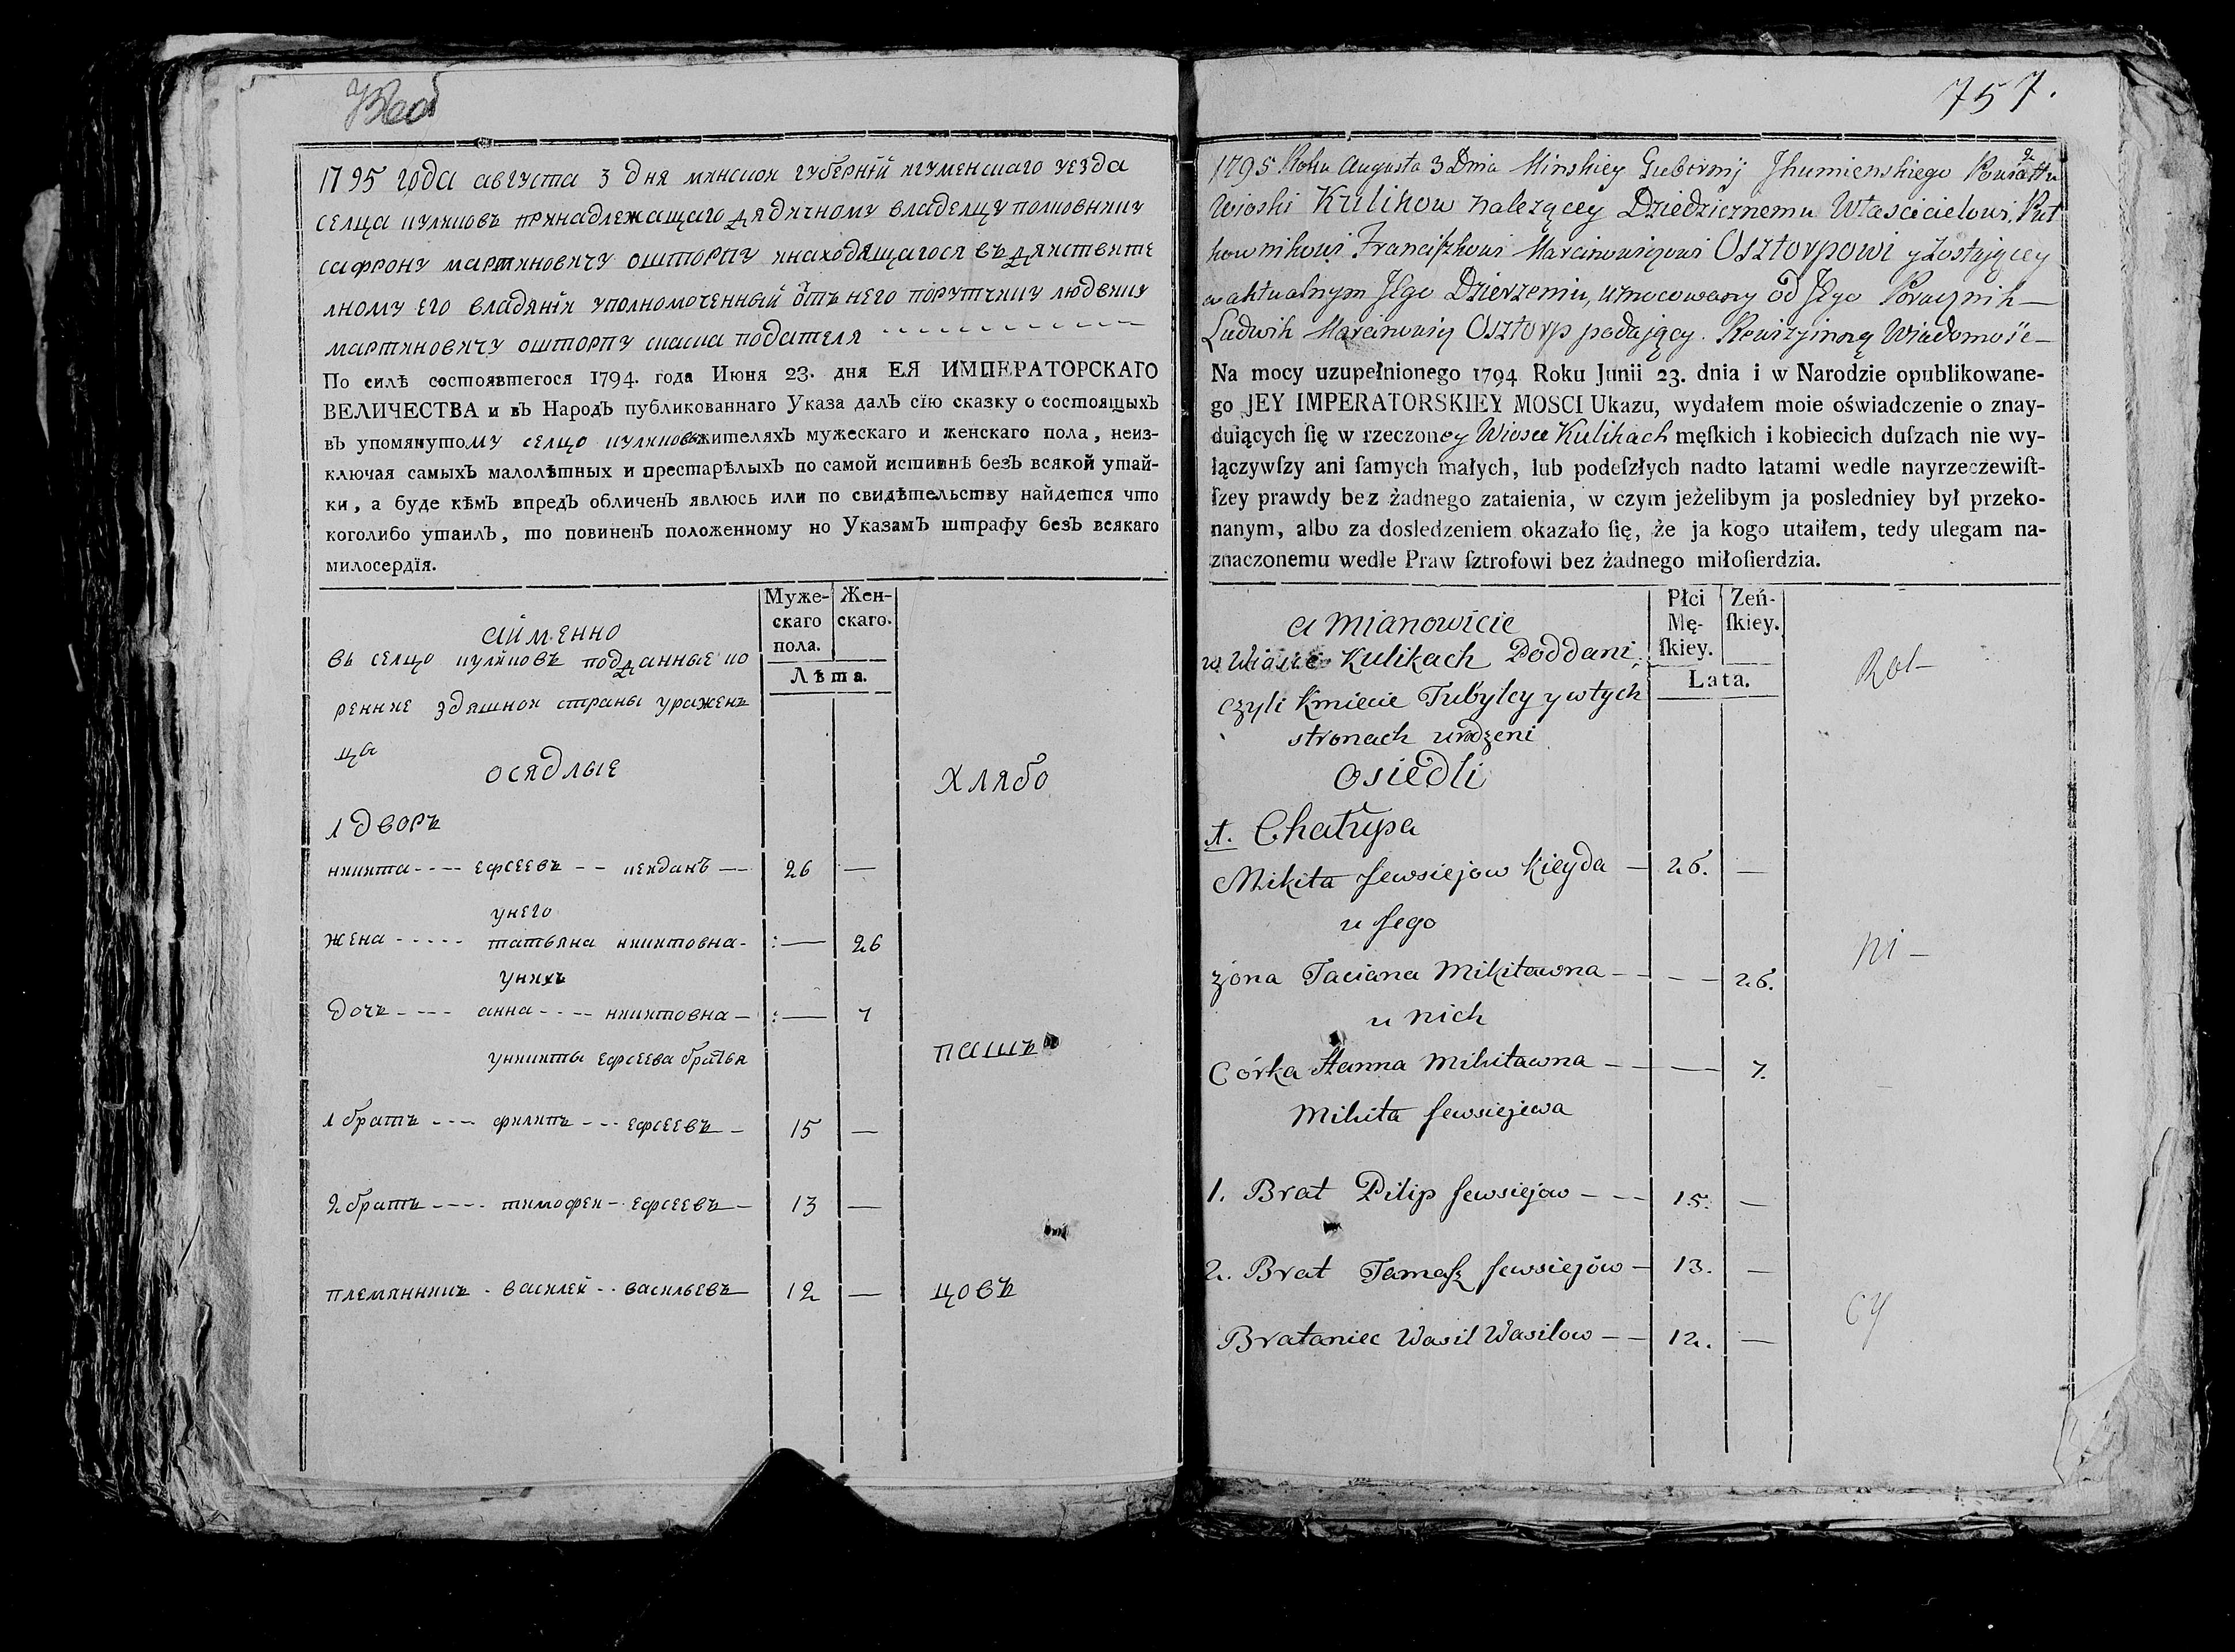 757.
1795 года августа 3 дня минской губернїй игуменскаго уезда
селца куликовъ принадлежащаго дядичному владелцу полковнику
сафрону мартиновичу ошторпу инаходящагося въ дяиствите
лному его владянїи уполномоченный отъ него порутчику людвику
мартиновичу ошторпу скаска подателя
По силѣ состоявшегося 1794. года Июня 23. дня ЕЯ ИМПЕРАТОРСКАГО
ВЕЛИЧЕСТВА и въ Народъ публикованнаго Указа далъ сїю сказку о состоящыхъ
въ упомянутому селцо куликовъ жителяхъ мужескаго и женскаго пола, неиз-
ключая самыхъ малолѣтныхъ и престарѣлыхъ по самой истиннѣ безъ всякой утай-
ки, а буде кѣмъ впредъ обличенъ явлюсь или по свидѣтельству найдется что
коголибо утаилъ, то повиненъ положенному по Указамъ штрафу безъ всякаго
милосердїя.
Муже-
скаго
пола.
Жен-
скаго.
Лѣта.
айменно
въ селцо куликовъ подданные ко
ренние здяшнои страны уражен
цы
осядлые
хлябо
1 дворъ
никита ---- ефсеевъ -- кейданъ -- 26 —
унего
жена ----- татьяна никитовна - :— 26
унихъ
дочъ ---- анна ---- никитовна - :— 7
уникиты ефсеева братья
пашъ
1 братъ --- филипъ --- ефсеевъ - 15 —
2 братъ ---- тимофеи -- ефсеевъ - 13 —
племянникъ - василей -- васильевъ 12 —
цовъ
1795 Roku Augusta 3 Dnia Minskiey Gubernij Jhumienskiego Powiattu
Wioski Kulikow nalezącey Dziedzicznemu Włascicielowi, Puł
kownikowi Franciſzkowi Marcinowiczowi Osztorpowi y zostaiącey
w aktualnym JEgo Dzierzeniu, umocowany od JEgo Porucznik —
Ludwik Marcinowicz Osztorp podaiący. Rewizyiną Wiadomość —
Na mocy uzupełnionego 1794 Roku Junii 23. dnia i w Narodzie opublikowane-
go JEY IMPERATORSKIEY MOSCI Ukazu, wydałem moie oświadczenie o znay-
duiących ſię w rzeczoney Wiosce Kulikach męſkich i kobiecich duſzach nie wy-
łączywſzy ani ſamych małych, lub podeſzłych nadto latami wedle nayrzeczewiſt-
ſzey prawdy bez żadnego zataienia, w czym jeżelibym ja posledniey był przeko-
nanym, albo za dosledzeniem okazało ſię, że ja kogo utaiłem, tedy ulegam na-
znaczonemu wedle Praw ſztrofowi bez żadnego miłoſierdzia.
Płci
Mę-
ſkiey.
Zeń-
ſkiey.
Lata.
a mianowicie
w Wiosce Kulikach Poddani
czyli Kmiecie Tubylcy y wtych
stronach urodzeni
osiedli
Rol —
1. Chałupa
Mikita Jewsiejow Kieyda — 26. —
u Jego
żona Taciana Mikitawna — — 26.
ni —
u nich
Córka Hanna Mikitawna — — 7.
Mikita Jewsiejewa
1. Brat Pilip Jewsiejow — — 15. —
2. Brat Tamaſz Jewsiejów — 13. —
Brataniec Wasil Wasilow — — 12. —
cy